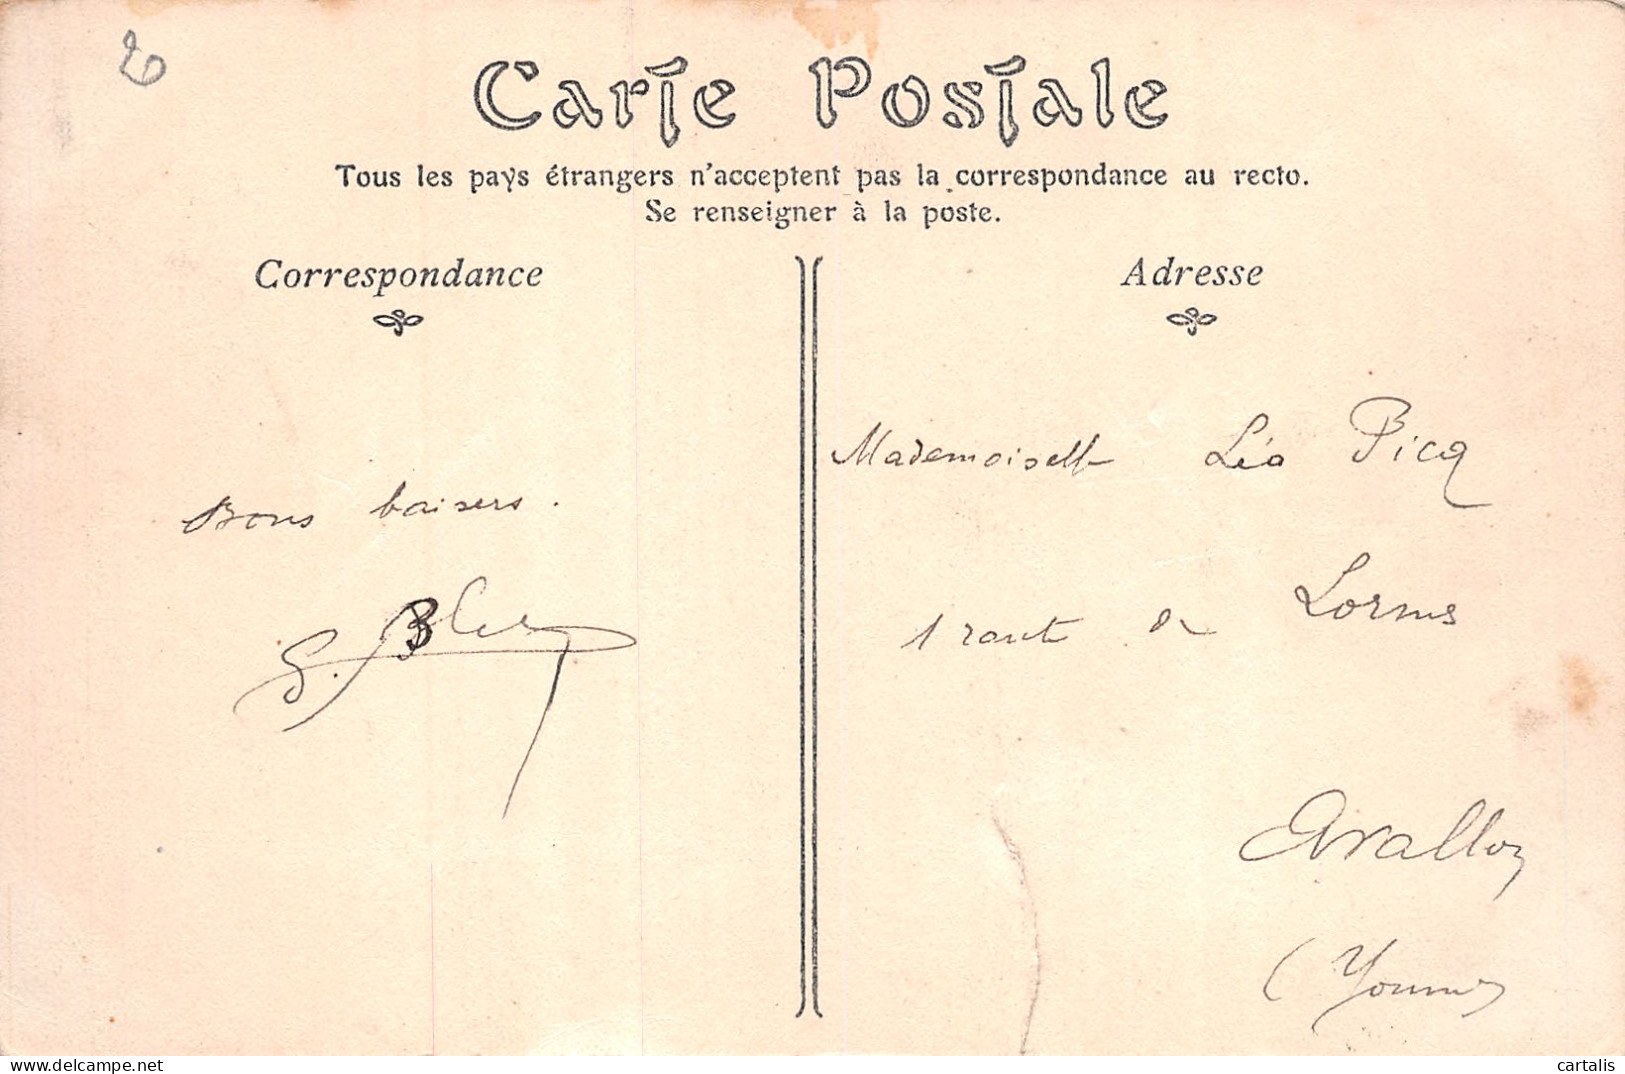 Carte Postale
Tous les pays étrangers n'acceptent pas la correspondance au recto.
Se renseigner à la poste.
Correspondance
Adresse
Mademoiselle Léa Picq
Bons baisers.
1 route de Lormes
Avallon
(Yonne)
cartalis